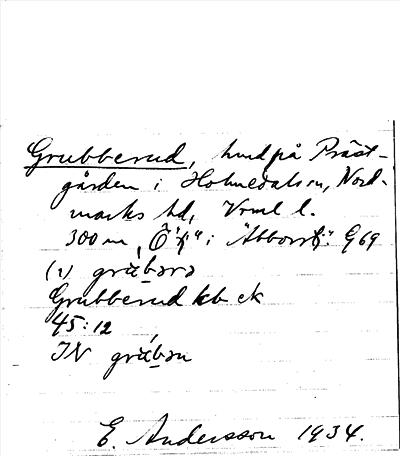 Grubberud, hmd på Präst-
gården i Holmedals sn, Nord-
marks hd, Vrml l.
300 m Ö i "Abborrtj." Eg 69
(1) 
Grubberud kb ek
45:12
IN
E. Andersson 1934.